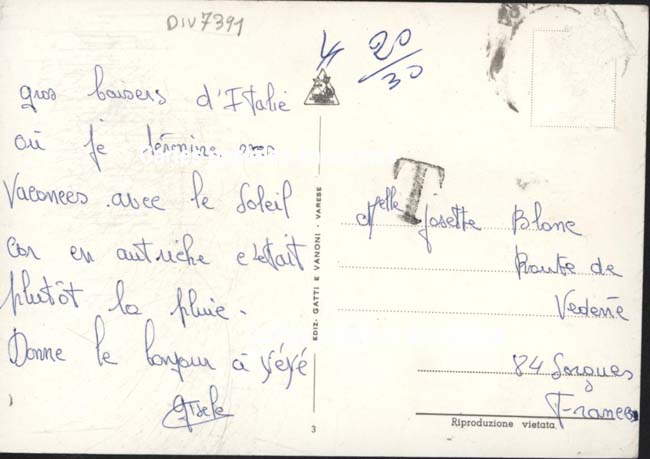 DIV7391
4 20/30
gros baisers d'Italie
où je termine mes
vacances avec le Soleil
car en autriche c'était
plutôt la pluie.
Donne le bonjour à
Gisele
EDIZ. GATTI E VANONI - VARESE
3
T
Melle Josette Blanc
Route de
Vedène
84 Sorgues
France
Riproduzione vietata